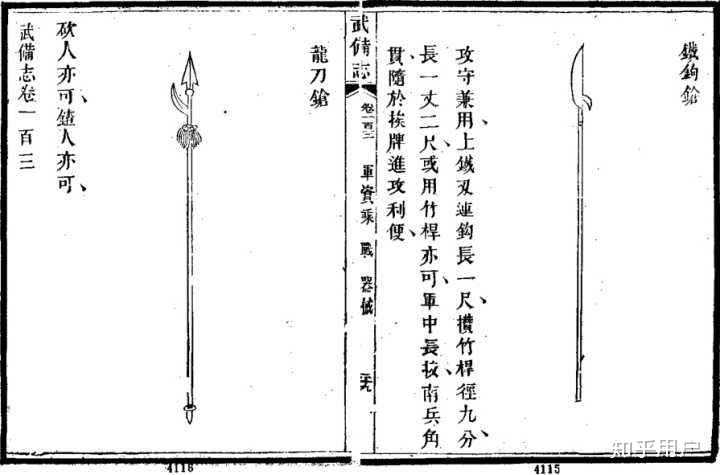 鐵鉤鎗
攻守兼用上鐵刃連鉤長一尺攢竹桿徑九分
長一丈二尺或用竹桿亦可軍中長技南兵角
貫隨於挨牌進攻利便
武備志
卷一百三
軍資乘
戰
器械
龍刀鎗
砍人亦可𢵧人亦可
武備志卷一百三
4116
4115
知乎用户